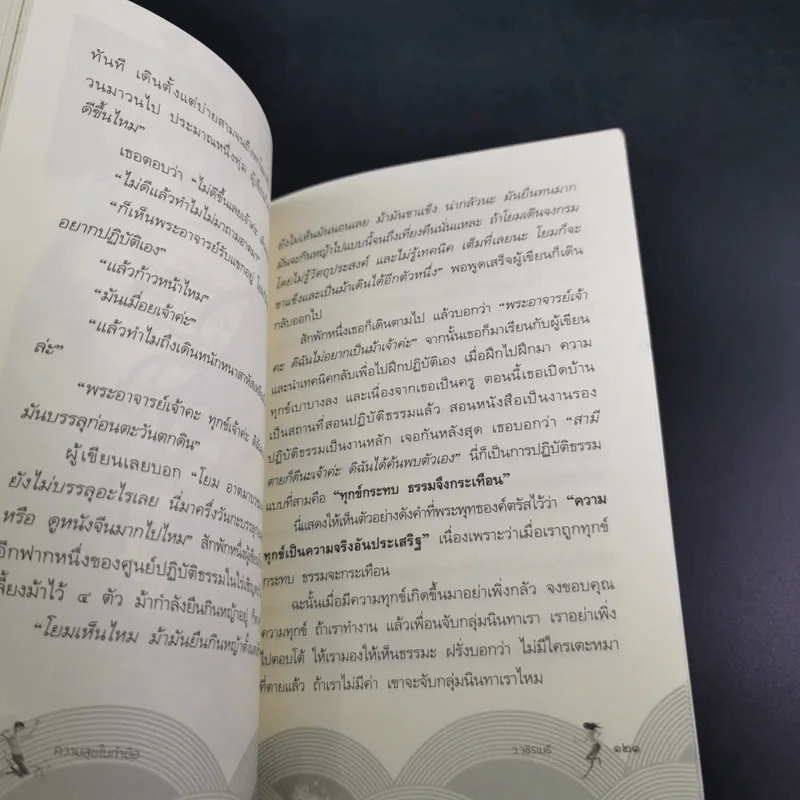 ทันที เดินตั้งแต่บ่ายสามจนถึง
วนมาวนไป ประมาณหนึ่งทุ่ม
ดีขึ้นไหม”
เธอตอบว่า “ไม่ดีขึ้นเลยเจ้าค่ะ
“ไม่ดีแล้วทำไมไม่มาถามอาตมา”
“ก็เห็นพระอาจารย์รับแขกอยู่
อยากปฏิบัติเอง”
“แล้วก้าวหน้าไหม”
“มันเมื่อยเจ้าค่ะ”
“แล้วทำไมถึงเดินหนักหนาสาหัส
ล่ะ”
“พระอาจารย์เจ้าคะ ทุกข์เจ้าค่ะ
มันบรรลุก่อนตะวันตกดิน”
ผู้เขียนเลยบอก “โยม อาตมาบวช
ยังไม่บรรลุอะไรเลย นี่มาครึ่งวันกะบรรลุ
หรือ ดูหนังจีนมากไปไหม” สักพักหนึ่งผู้เขียน
อีกฟากหนึ่งของศูนย์ปฏิบัติธรรมในไร่เชิญตะวัน
เลี้ยงม้าไว้ ๔ ตัว ม้ากำลังยืนกินหญ้าอยู่
“โยมเห็นไหม ม้ามันยืนกินหญ้าตั้งแต่
ความสุขในกำมือ
ยังไม่เห็นมันนอนเลย ม้ามันขาแข็ง น่ากลัวนะ มันยืนทนมาก
มันจะกินหญ้าไปแบบนี้จนถึงเที่ยงคืนนั่นแหละ ถ้าโยมเดินจงกรม
โดยไม่รู้วัตถุประสงค์ และไม่รู้เทคนิค เต็มที่เลยนะ โยมก็จะ
ขาแข็งและเป็นม้าเดินได้อีกตัวหนึ่ง” พอพูดเสร็จผู้เขียนก็เดิน
กลับออกไป
สักพักหนึ่งเธอก็เดินตามไป แล้วบอกว่า “พระอาจารย์เจ้า
คะ ดิฉันไม่อยากเป็นม้าเจ้าค่ะ” จากนั้นเธอก็มาเรียนกับผู้เขียน
และนำเทคนิคกลับเพื่อไปฝึกปฏิบัติเอง เมื่อฝึกไปฝึกมา ความ
ทุกข์เบาบางลง และเนื่องจากเธอเป็นครู ตอนนี้เธอเปิดบ้าน
เป็นสถานที่สอนปฏิบัติธรรมแล้ว สอนหนังสือเป็นงานรอง
ปฏิบัติธรรมเป็นงานหลัก เจอกันหลังสุด เธอบอกว่า “สามี
ตายก็ดีนะเจ้าค่ะ ดิฉันได้ค้นพบตัวเอง” นี่ก็เป็นการปฏิบัติธรรม
แบบที่สามคือ “ทุกข์กระทบ ธรรมจึงกระเทือน”
นี่แสดงให้เห็นตัวอย่างดังคำที่พระพุทธองค์ตรัสไว้ว่า “ความ
ทุกข์เป็นความจริงอันประเสริฐ” เนื่องเพราะว่าเมื่อเราถูกทุกข์
กระทบ ธรรมจะกระเทือน
ฉะนั้นเมื่อมีความทุกข์เกิดขึ้นมาอย่าเพิ่งกลัว จงขอบคุณ
ความทุกข์ ถ้าเราทำงาน แล้วเพื่อนจับกลุ่มนินทาเรา เราอย่าเพิ่ง
ไปตอบโต้ ให้เรามองให้เห็นธรรมะ ฝรั่งบอกว่า ไม่มีใครเตะหมา
ที่ตายแล้ว ถ้าเราไม่มีค่า เขาจะจับกลุ่มนินทาเราไหม
ว.วชิรเมธี
๑๒๑